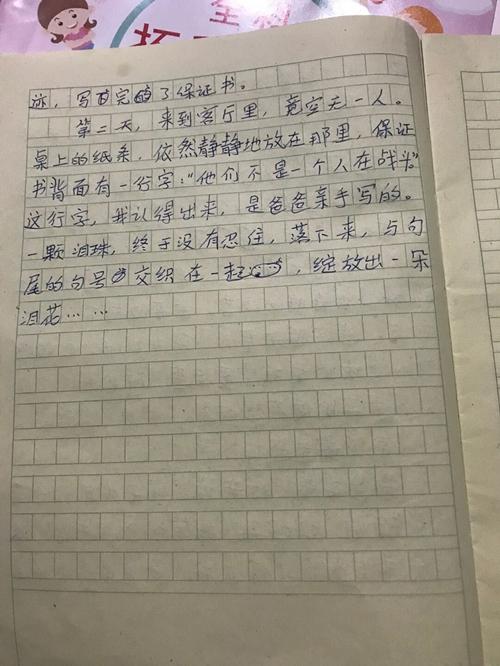 全科
迹，写完了保证书。
第二天，来到客厅里，竟空无一人。
桌上的纸条，依然静静地放在那里，保证
书背面有一行字：“他们不是一个人在战斗”
这行字，我认得出来，是爸爸亲手写的。
一颗泪珠，终于没有忍住，落下来，与句
尾的句号交织在一起，绽放出一朵
泪花……